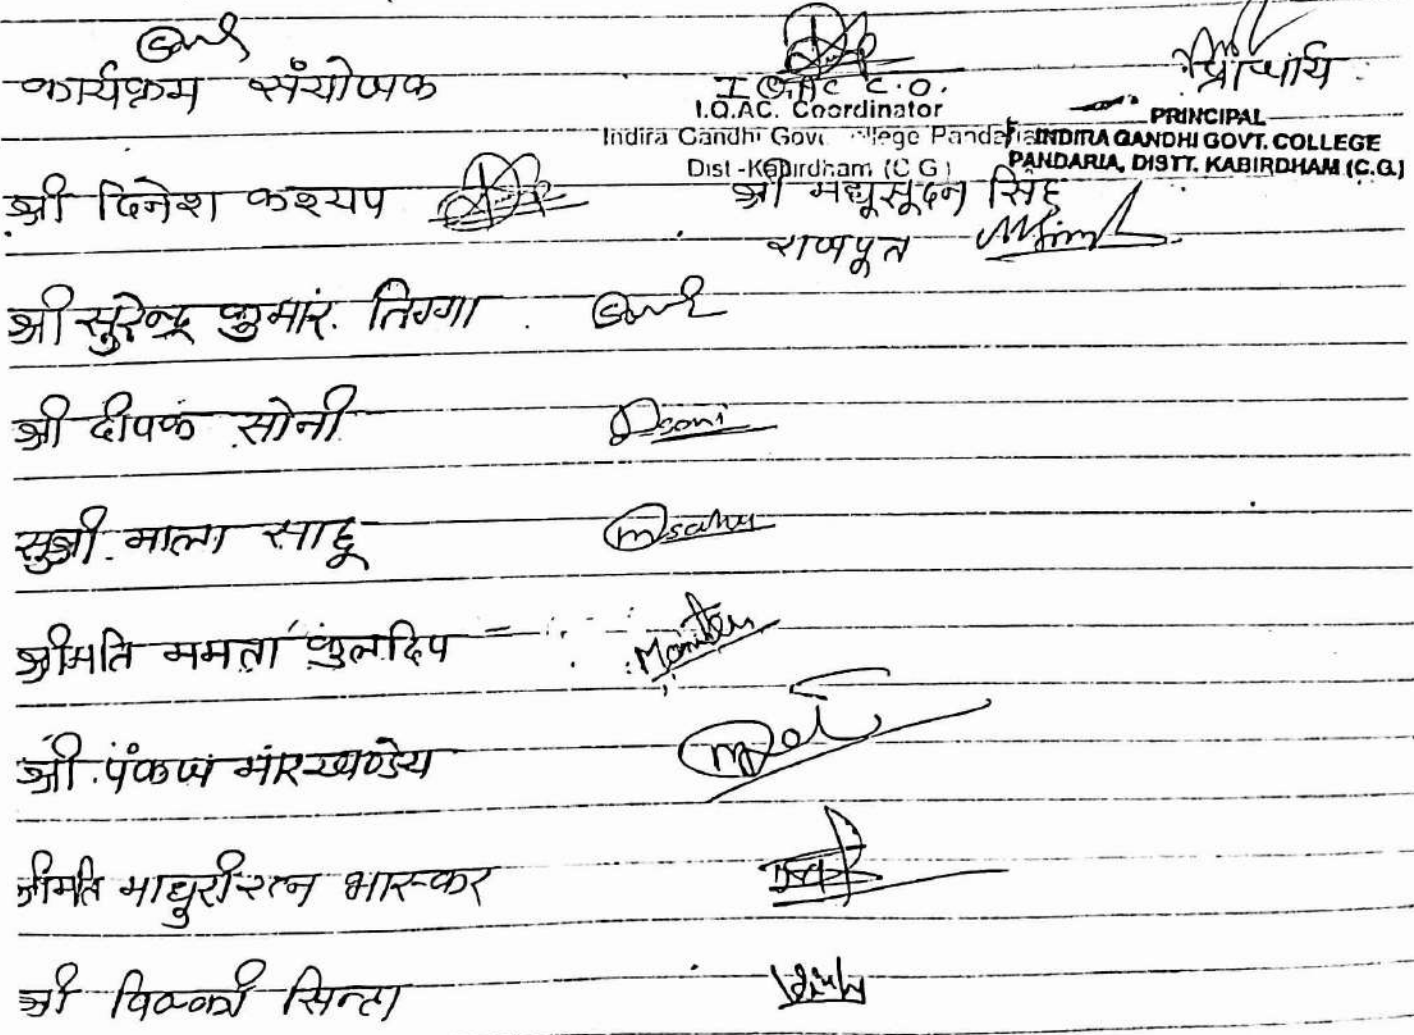 कार्यक्रम संयोजक
I Q A C C.O.
प्राचार्य
I.Q.AC. Coordinator
Indira Gandhi Govt College Pandaria
Dist -Kabirdham (C G)
PRINCIPAL
INDIRA GANDHI GOVT. COLLEGE
PANDARIA, DISTT. KABIRDHAM (C.G.)
श्री दिनेश कश्यप
श्री मधूसूदन सिंह
राजपूत
श्री सुरेन्द्र कुमार तिग्गा
श्री दीपक सोनी Dsoni
सुश्री माला साहू msahu
श्रीमति ममता कुलदिप
श्री पंकज मारखण्डेय
श्रीमति माधुरी रत्न भास्कर
श्री विक्की सिन्हा